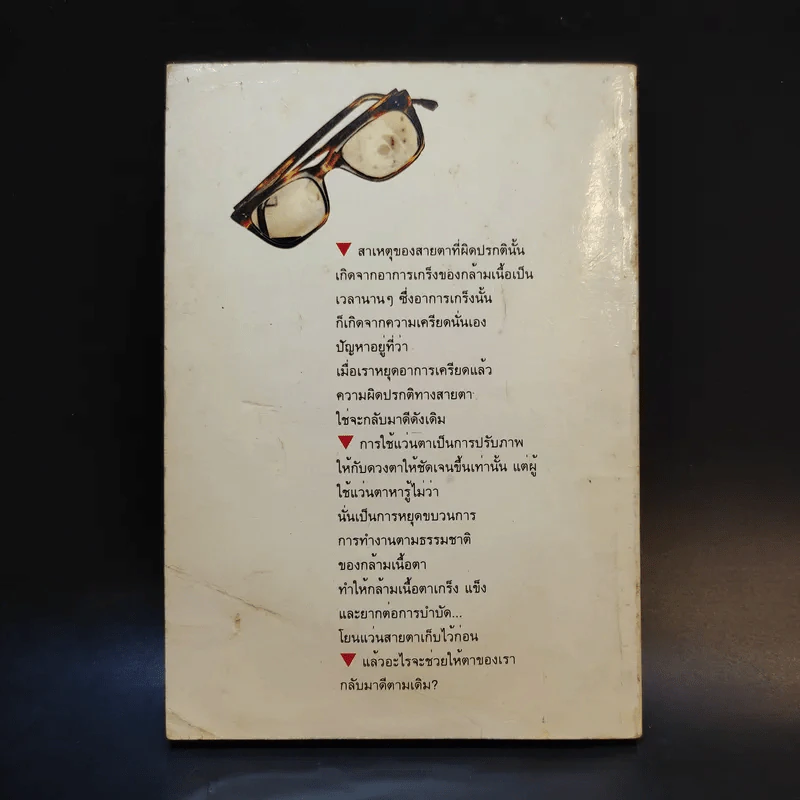 ▼ สาเหตุของสายตาที่ผิดปรกตินั้น
เกิดจากอาการเกร็งของกล้ามเนื้อเป็น
เวลานานๆ ซึ่งอาการเกร็งนั้น
ก็เกิดจากความเครียดนั่นเอง
ปัญหาอยู่ที่ว่า
เมื่อเราหยุดอาการเครียดแล้ว
ความผิดปรกติทางสายตา
ใช่จะกลับมาดีดังเดิม
▼ การใช้แว่นตาเป็นการปรับภาพ
ให้กับดวงตาให้ชัดเจนขึ้นเท่านั้น แต่ผู้
ใช้แว่นตาหารู้ไม่ว่า
นั่นเป็นการหยุดขบวนการ
การทำงานตามธรรมชาติ
ของกล้ามเนื้อตา
ทำให้กล้ามเนื้อตาเกร็ง แข็ง
และยากต่อการบำบัด...
โยนแว่นสายตาเก็บไว้ก่อน
▼ แล้วอะไรจะช่วยให้ตาของเรา
กลับมาดีตามเดิม?